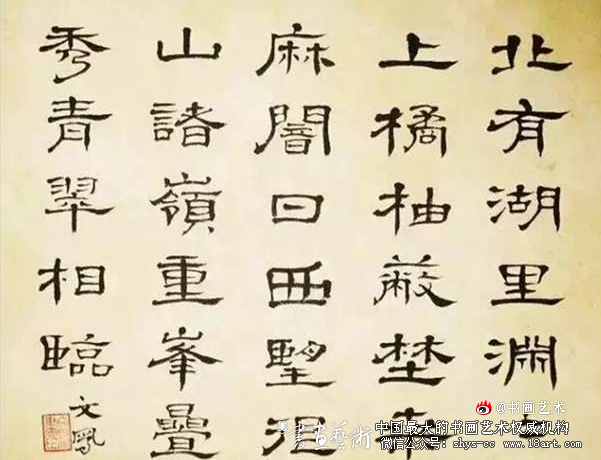 北有湖里淵
上橘柚蔽埜
麻闇日西望
山諸嶺重峯疊
秀青翠相臨
文鳳
@书画艺术
中国最大的书画艺术权威机构
微信公众号:shys-cc www.18art.com